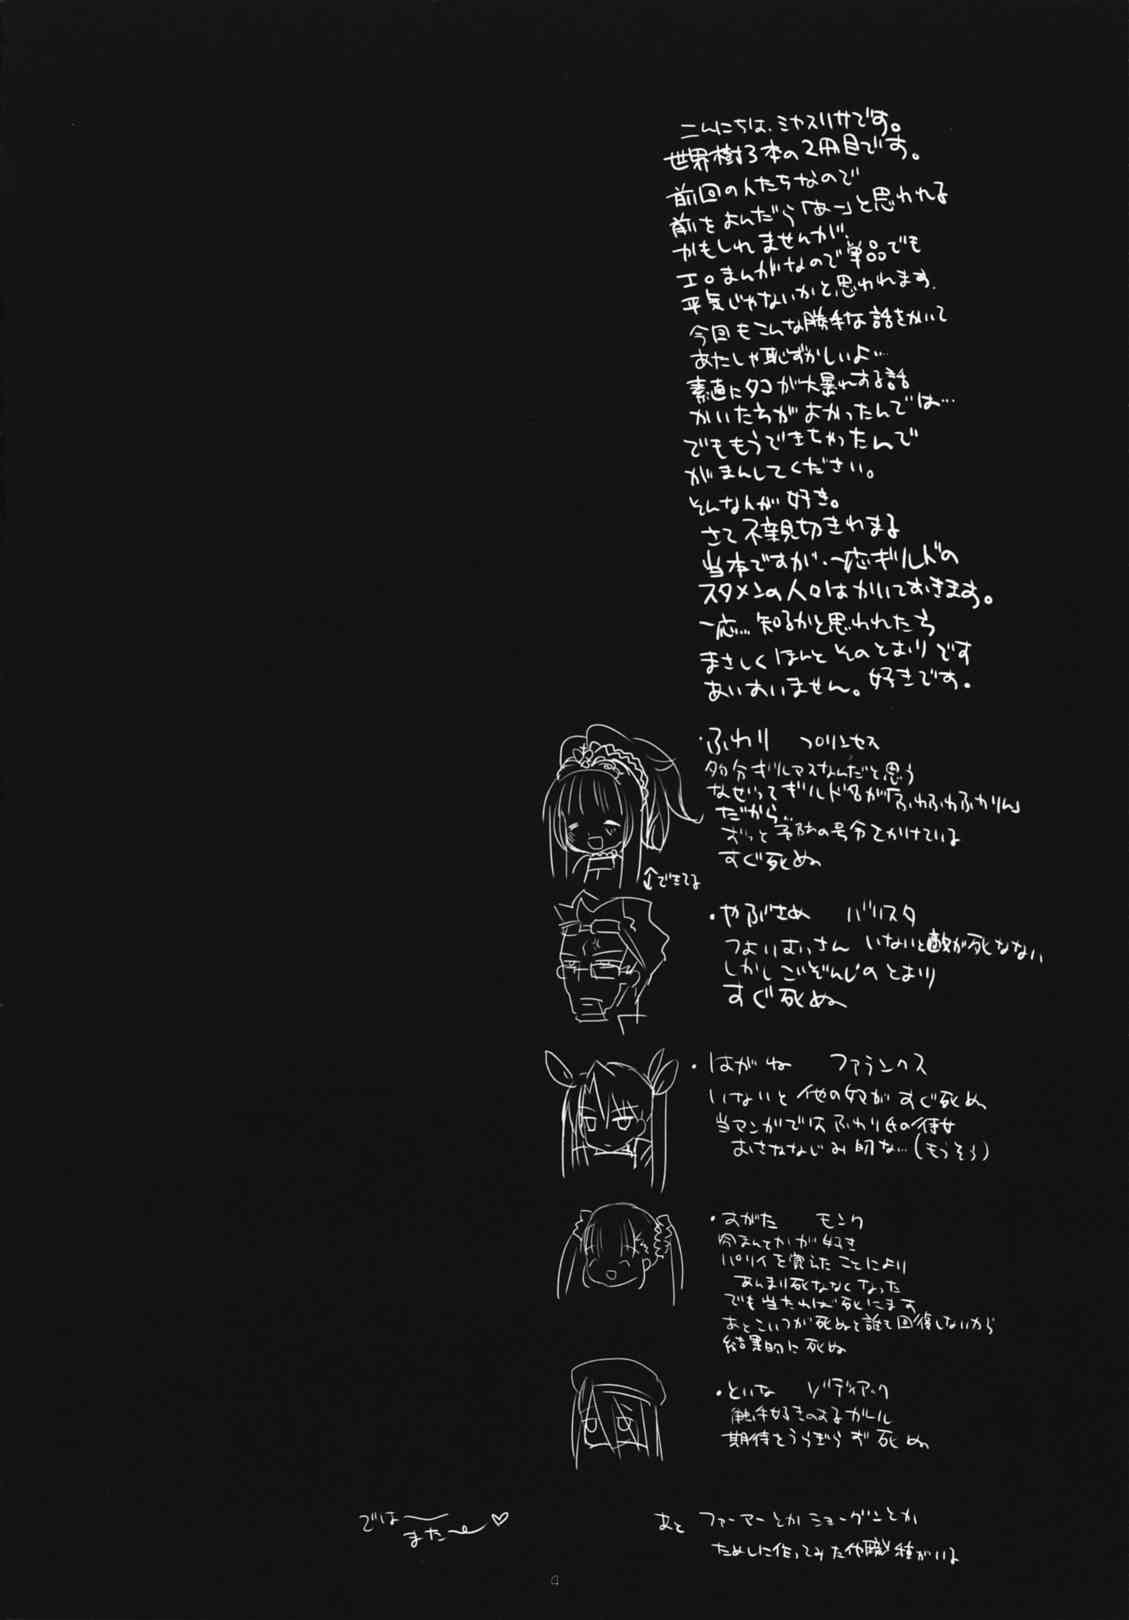 こんにちは、ミヤスリサです。
世界樹3本の2冊目です。
前回の人たちなので
前をよんだら「あー」と思われる
かもしれませんが、
エロまんがなので単品でも
平気じゃないかと思われます。
今回もこんな勝手な話をかいて
あたしゃ恥ずかしいよ…
素直にタコが大暴れする話
かいたらがよかったんでは…
でももうできちゃったんで
がまんしてください。
そんな人が好き。
さて不親切きわまる
当本ですが、一応ギルドの
スタメンの人らはかいておきます。
一応…知るかと思われたら
まさしくほんとそのとおりです
あいすいません。好きです。
・ふわり プリンセス
多分ギルマスなんだと思う
なぜってギルド名が「ふわふわふわりん」
だから…
ずっと予防の号令をかけている
すぐ死ぬ
↑できてる
・やぶさめ バリスタ
つよいおっさん いないと敵が死なない
しかしごぞんじのとおり
すぐ死ぬ
・はがね ファランクス
いないと他の奴がすぐ死ぬ
当マンガではふわり氏の侍女
おさななじみ的な…(もうそう)
・すがた モンク
肉まんとかが好き
パリィを覚えたことにより
あんまり死ななくなった
でも当たれば死にます
あとこいつが死ぬと誰も回復しないから
結果的に死ぬ
・といな ゾディアック
触手好きのするガール
期待をうらぎらず死ぬ
あと ファーマーとかショーグンとか
ためしに作ってみた他職種がいる
では〜
また〜♡